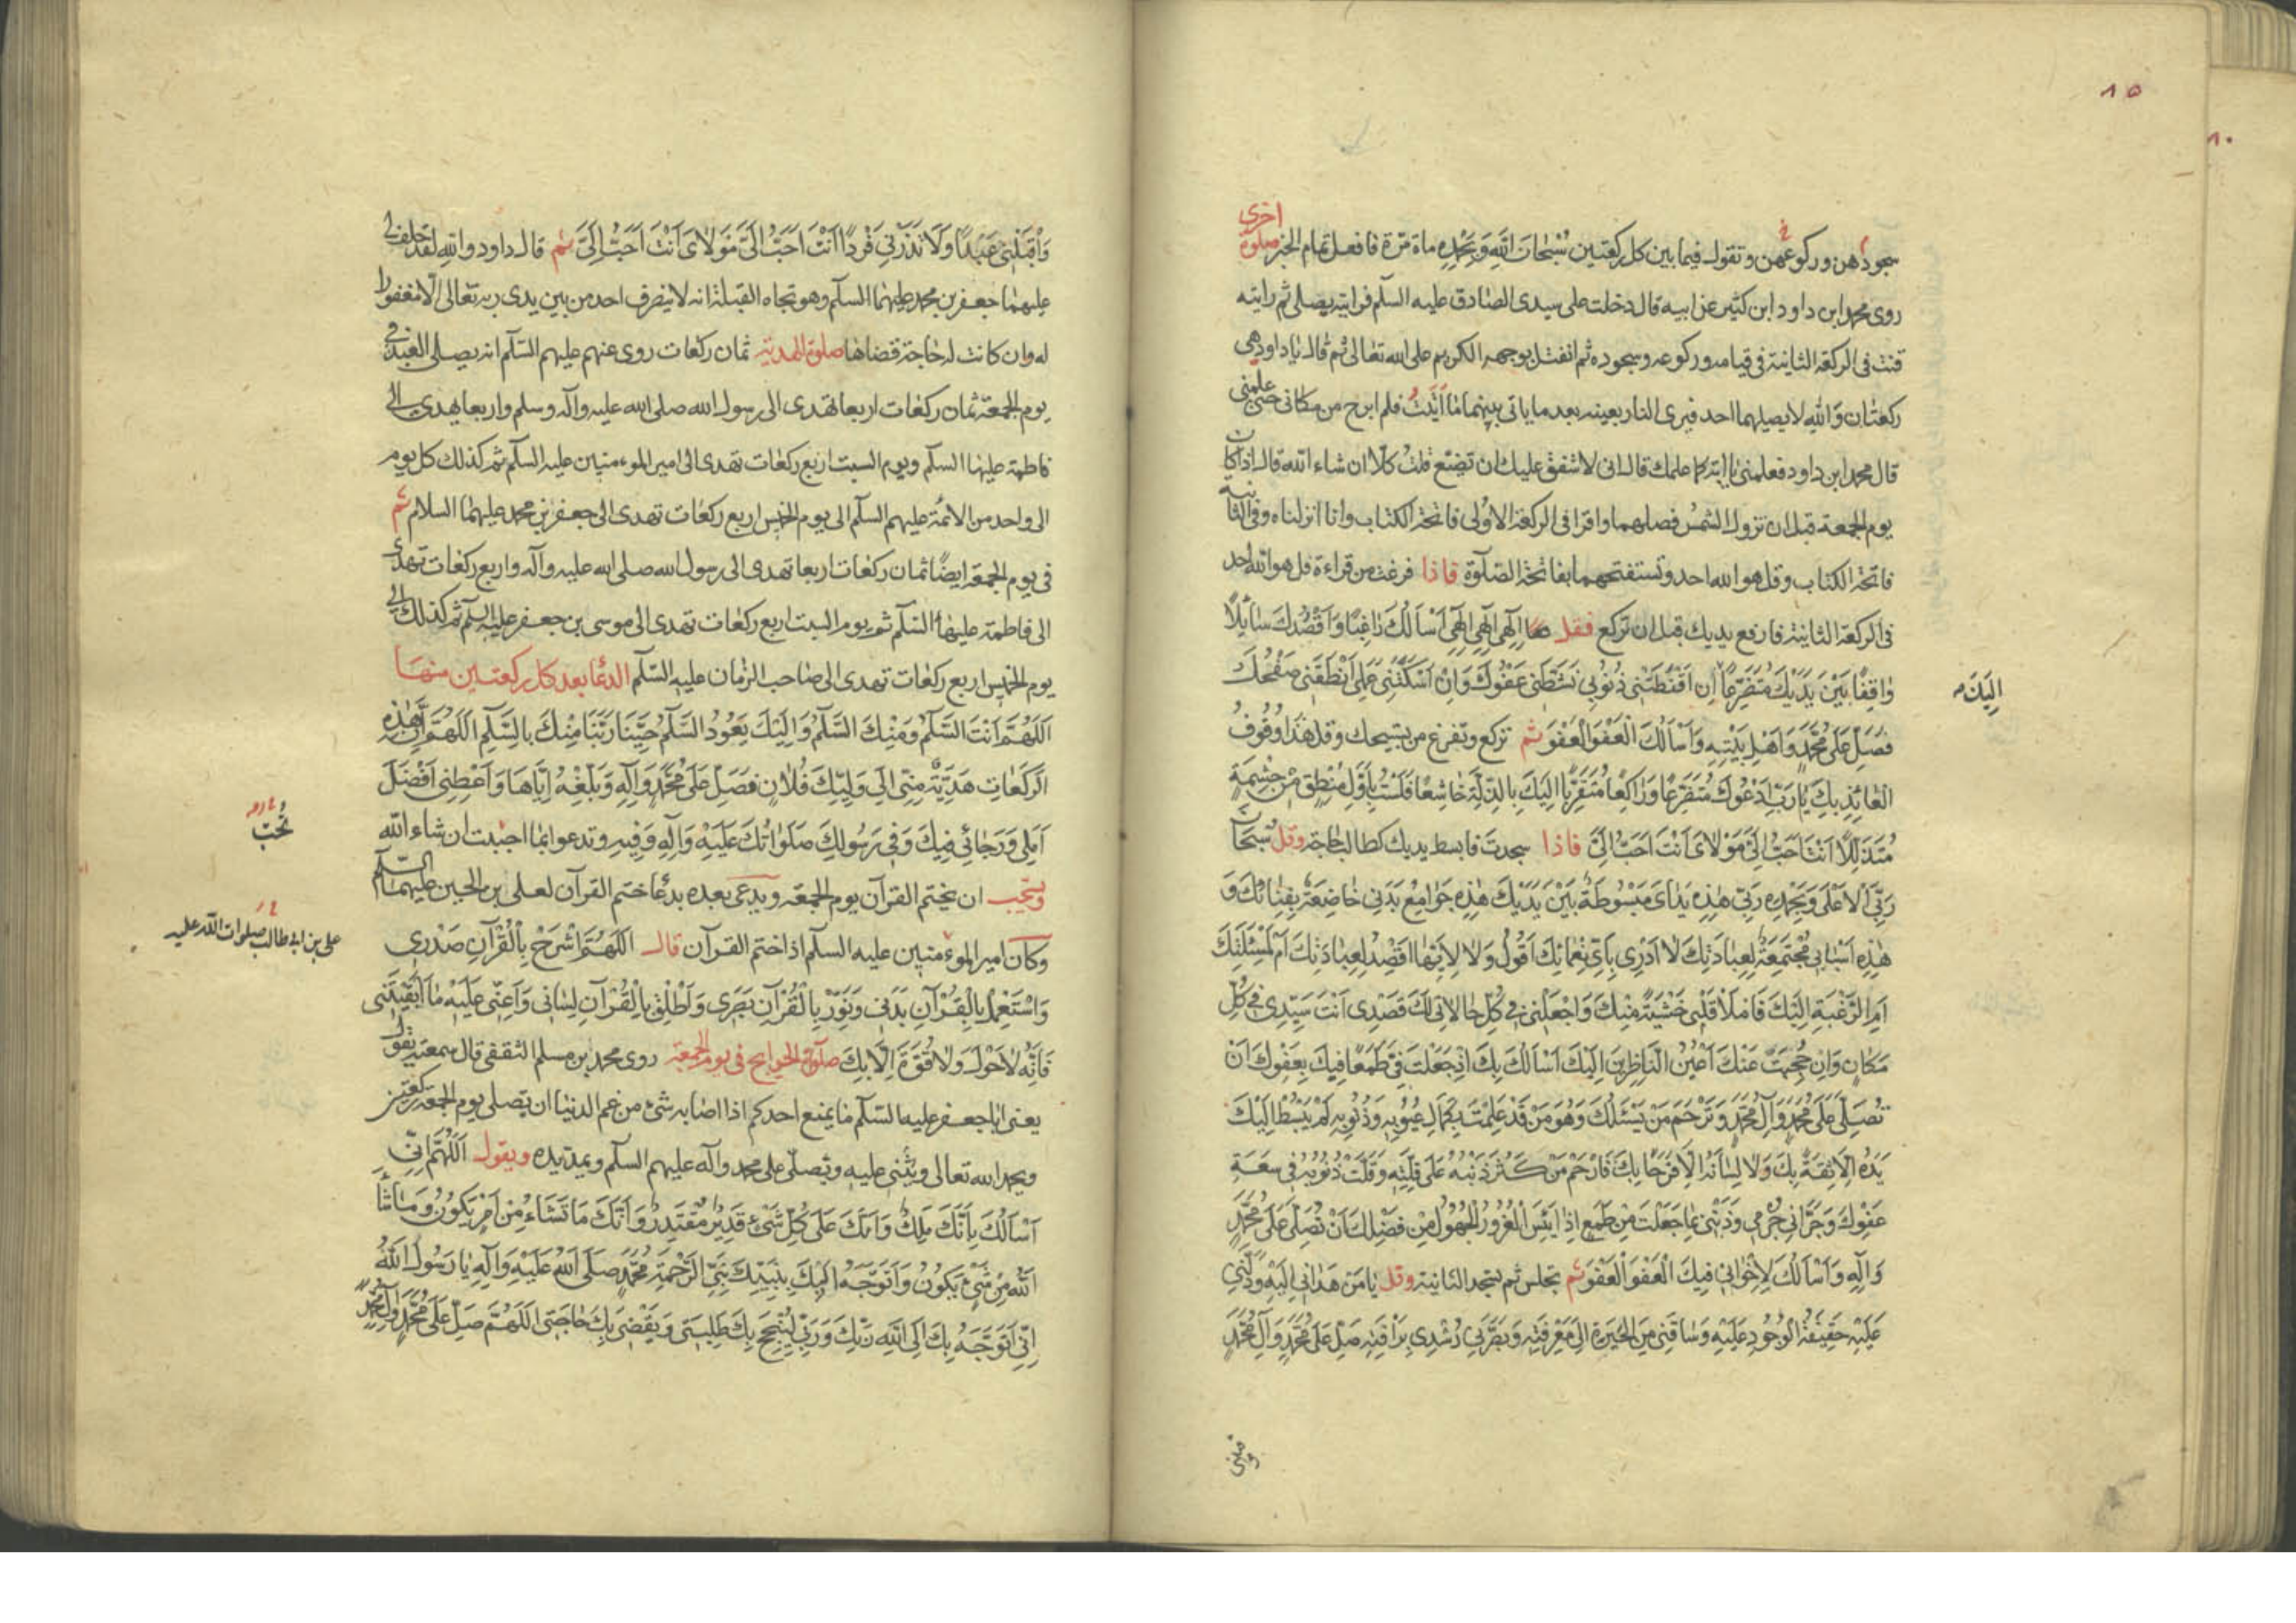 ٨٥
سجودهن وركوعهن وتقول فيما بين كل ركعتين سُبْحَانَ اللّٰهِ وَبِحَمْدِهِ ماة مرّة فافعل تمام الخبر صلوة اخرى
روى محمد ابن داود ابن كثير عن ابيه قال دخلت على سيدى الصادق عليه السلم فرايته يصلى ثم رايته
قنت فى الركعة الثانية فى قيامه وركوعه وسجوده ثم انفتل بوجهه الكريم على الله تعالى ثم قال يا داود هى
ركعتان وَاللّٰهِ لا يصليهما احد فيرى النار بعينه بعد ما ياتى بينهما ما اَتَيْتُ فلم ابرح من مكانى حتى علمنى
قال محمد ابن داود فعلمنى يا ابَه كما علمك قال انى لاشفق عليك ان تضيّع قلت كلّا ان شاء الله قال اذا كان
يوم الجمعة قبل ان تزول الشمس فصلهما واقرا فى الركعة الاولى فاتحة الكتاب وانا انزلناه وفى الثانية
فاتحة الكتاب وقل هو الله احد وتستفتحهما بفاتحة الصّلوة فاذا فرغت من قراءة قل هو الله احد
فى الركعة الثانية فارفع يديك قبل ان تركع فقل اِلٰهِى اِلٰهِى اِلٰهِى اَسْاَلُكَ رَاغِبًا وَاَقْصُدُكَ سَائِلًا
وَاقِفًا بَيْنَ يَدَيْكَ مُتَضَرِّعًا اِن اَقْنَطَتْنِى ذُنُوبِى نَشَّطَنِى عَفْوُكَ وَاِنْ اَسْكَتَنِى عَمَلِى اَنْطَقَنِى صَفْحُكَ
اِلَيْكَ
فَصَلِّ عَلَى مُحَمَّدٍ وَاَهْلِ بَيْتِهِ وَاَسْاَلُكَ الْعَفْوَ الْعَفْوَ ثم تركع وتفرغ من تسبيحك وقل هٰذَا وُقُوفُ
الْعَائِذِ بِكَ يَا رَبِّ اَدْعُوكَ مُتَضَرِّعًا وَرَاكِعًا مُتَقَرِّبًا اِلَيْكَ بِالذِّلَّةِ خَاشِعًا فَلَسْتُ بِاَوَّلِ مُنْطِقٍ مِنْ حِشْمَةٍ
مُتَذَلِّلًا اَنْتَ اَحَبُّ اِلَىَّ مَوْلَاىَ اَنْتَ اَحَبُّ اِلَىَّ فاذا سجدت فابسط يديك كطالب حاجة وقل سُبْحَانَ
رَبِّىَ الْاَعْلَى وَبِحَمْدِهِ رَبِّ هٰذِهِ يَدَاىَ مَبْسُوطَةٌ بَيْنَ يَدَيْكَ هٰذِهِ جَوَامِعُ بَدَنِى خَاضِعَةٌ بِفِنَائِكَ وَ
هٰذِهِ اَسْبَابِى مُجْتَمِعَةٌ لِعِبَادَتِكَ لَا اَدْرِى بِاَىِّ نَعْمَائِكَ اَقُولُ وَلَا لِاَيِّهَا اَقْصِدُ لِعِبَادَتِكَ اَمْ لِمَسْئَلَتِكَ
اَمِ الرَّغْبَةِ اِلَيْكَ فَامْلَاْ قَلْبِى خَشْيَةً مِنْكَ وَاجْعَلْنِى فِى كُلِّ حَالَاتِى لَكَ قَصْدِى اَنْتَ سَيِّدِى فِى كُلِّ
مَكَانٍ وَاِنْ حُجِبَتْ عَنْكَ اَعْيُنُ النَّاظِرِينَ اِلَيْكَ اَسْاَلُكَ بِكَ اِذْ جَعَلْتَ فِىَّ طَمَعًا فِيكَ بِعَفْوِكَ اَنْ
تُصَلِّىَ عَلَى مُحَمَّدٍ وَآلِ مُحَمَّدٍ وَتَرْحَمَ مَنْ يَسْئَلُكَ وَهُوَ مَنْ قَدْ عَلِمْتَ بِكَمَالِ عُيُوبِهِ وَذُنُوبِهِ لَمْ يَبْسُطْ اِلَيْكَ
يَدَهُ اِلَّا ثِقَةً بِكَ وَلَا لِسَانَهُ اِلَّا فَرَحًا بِكَ فَارْحَمْ مَنْ كَثُرَ ذَنْبُهُ عَلَى قِلَّتِهِ وَقَلَّتْ ذُنُوبُهُ فِى سَعَةِ
عَفْوِكَ وَجَرَّاَنِى جُرْمِى وَذَنْبِى بِمَا جَعَلْتَ مِنْ طَمَعٍ اِذَا اَيِسَ الْغَرُورُ الْجَهُولُ مِنْ فَضْلِكَ اَنْ تُصَلِّىَ عَلَى مُحَمَّدٍ
وَآلِهِ وَاَسْاَلُكَ لِاِخْوَانِى فِيكَ الْعَفْوَ الْعَفْوَ ثم تجلس ثم تسجد الثانية وقل يَا مَنْ هَدَانِى اِلَيْهِ وَدَلَّنِى
عَلَيْهِ حَقِيقَةُ الْوُجُودِ عَلَيْهِ وَسَاقَنِى مِنَ الْحَيْرَةِ اِلَى مَعْرِفَتِهِ وَبَصَّرَنِى رُشْدِى بِرَاْفَتِهِ صَلِّ عَلَى مُحَمَّدٍ وَآلِ مُحَمَّدٍ
وَاقْبَلْنِى عَبْدًا وَلَا تَذَرْنِى فَرْدًا اَنْتَ اَحَبُّ اِلَىَّ مَوْلَاىَ اَنْتَ اَحَبُّ اِلَىَّ ثم قال داود والله لقد حلف لى
عليهما جعفر بن محمد عليهما السلم وهو تجاه القبلة انه لا ينصرف احد من بين يدى ربه تعالى الّا مغفورا
له وان كانت له حاجة قضاها صلوة الهدية ثمان ركعات روى عنهم عليهم السّلم انه يصلى العبد فى
يوم الجمعة ثمان ركعات اربعا تهدى الى رسول الله صلى الله عليه وآله وسلم واربعا يهدى الى
فاطمة عليها السلم ويوم السبت اربع ركعات تهدى الى امير المومنين عليه السلم ثم كذلك كل يوم
الى واحد من الائمة عليهم السلم الى يوم الخميس اربع ركعات تهدى الى جعفر بن محمد عليهما السلام ثم
فى يوم الجمعة ايضًا ثمان ركعات اربعا تهدى الى رسول الله صلى الله عليه وآله واربع ركعات تهدى
الى فاطمة عليها السّلم ثم يوم السبت اربع ركعات تهدى الى موسى بن جعفر عليه السلم ثم كذلك الى
يوم الخميس اربع ركعات تهدى الى صاحب الزمان عليه السّلم الدعا بعد كل ركعتين منها
اَللّٰهُمَّ اَنْتَ السَّلٰمُ وَمِنْكَ السَّلٰمُ وَاِلَيْكَ يَعُودُ السَّلٰمُ حَيِّنَا رَبَّنَا مِنْكَ بِالسَّلٰمِ اَللّٰهُمَّ اِنَّ هٰذِهِ
الرَّكَعَاتِ هَدِيَّةٌ مِنِّى اِلَى وَلِيِّكَ فُلَانٍ فَصَلِّ عَلَى مُحَمَّدٍ وَآلِهِ وَبَلِّغْهُ اِيَّاهَا وَاَعْطِنِى اَفْضَلَ
اَمَلِى وَرَجَائِى فِيكَ وَفِى رَسُولِكَ صَلَوَاتُكَ عَلَيْهِ وَآلِهِ وَفِيهِ وتدعو بما احببت ان شاء الله
تُحِبّ
ويستحب ان يختم القرآن يوم الجمعة ويدعى بعده بدعا ختم القرآن لعلى بن الحسين عليهما السلم
وكان امير المومنين عليه السلم اذا ختم القرآن قال اَللّٰهُمَّ اشْرَحْ بِالْقُرْآنِ صَدْرِى
على بن ابى طالب صلوات الله عليه
وَاسْتَعْمِلْ بِالْقُرْآنِ بَدَنِى وَنَوِّرْ بِالْقُرْآنِ بَصَرِى وَاَطْلِقْ بِالْقُرْآنِ لِسَانِى وَاَعِنِّى عَلَيْهِ مَا اَبْقَيْتَنِى
فَاِنَّهُ لَا حَوْلَ وَلَا قُوَّةَ اِلَّا بِكَ صلوة الحوايج فى يوم الجمعة روى محمد بن مسلم الثقفى قال سمعته يقول
يعنى اباجعفر عليه السّلم ما يمنع احدكم اذا اصابه شئ من غم الدنيا ان يصلى يوم الجمعة ركعتين
ويحمد الله تعالى ويثنى عليه ويصلّى على محمد وآله عليهم السلم ويمد يده ويقول اَللّٰهُمَّ اِنِّى
اَسْاَلُكَ بِاَنَّكَ مَلِكٌ وَاَنَّكَ عَلَى كُلِّ شَىْءٍ قَدِيرٌ مُقْتَدِرٌ وَاَنَّكَ مَا تَشَاءُ مِنْ اَمْرٍ يَكُونُ وَمَا شَاءَ
اللّٰهُ مِنْ شَىْءٍ يَكُونُ وَاَتَوَجَّهُ اِلَيْكَ بِنَبِيِّكَ نَبِىِّ الرَّحْمَةِ مُحَمَّدٍ صَلَّى اللّٰهُ عَلَيْهِ وَآلِهِ يَا رَسُولَ اللّٰهِ
اِنِّى اَتَوَجَّهُ بِكَ اِلَى اللّٰهِ رَبِّكَ وَرَبِّى لِيُنْجِحَ بِكَ طَلِبَتِى وَيَقْضِىَ بِكَ حَاجَتِى اَللّٰهُمَّ صَلِّ عَلَى مُحَمَّدٍ وَآلِ مُحَمَّدٍ